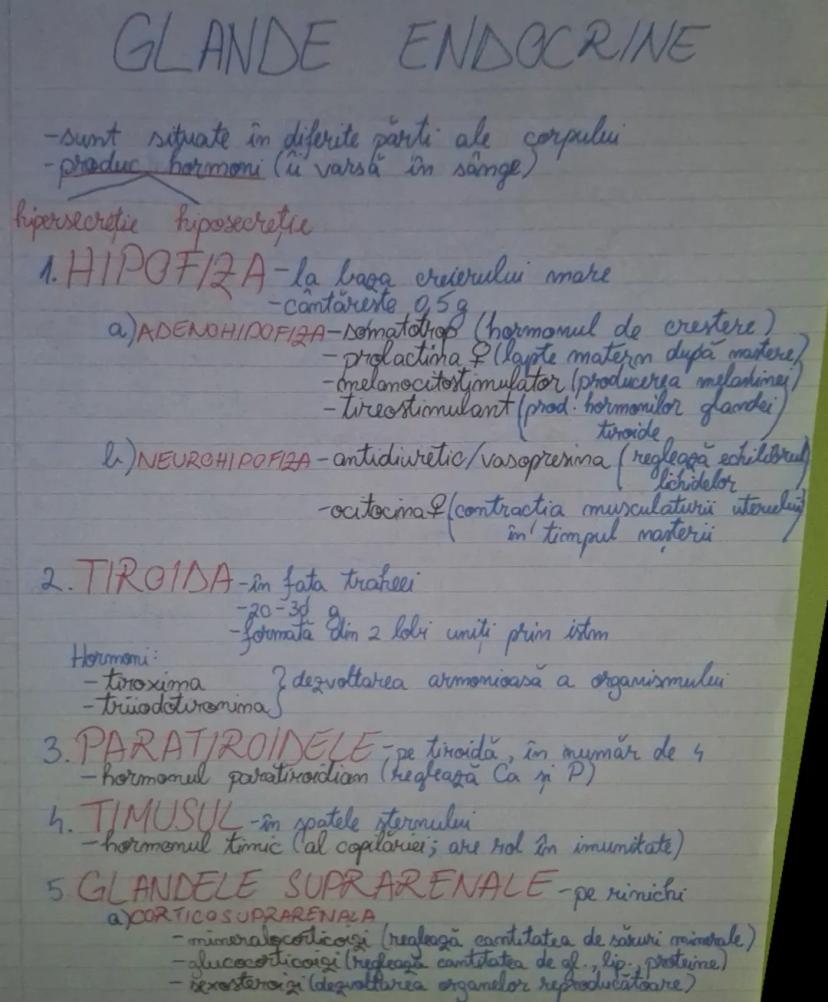 GLANDE ENDOCRINE
-sunt situate în diferite părti ale corpului
-produc hormoni (îi varsă în sânge)
hipersecreție hiposecreție
1. HIPOFIZA -la baza creierului mare
-cântărește 0,5g
a) ADENOHIPOFIZA -somatotrop (hormonul de crestere)
-prolactina ♀ (lapte matern după nastere)
-melanocitostimulator (producerea melaninei)
-tireostimulant (prod. hormonilor glandei
tiroide)
b) NEUROHIPOFIZA -antidiuretic/vasopresina (reglează echilibrul
lichidelor)
-ocitocina ♀ (contractia musculaturii uterului
în timpul nașterii)
2. TIROIDA -în fata traheei
-20-30 g
-formată din 2 lobi uniți prin istm
Hormoni:
-tiroxina } dezvoltarea armonioasă a organismului
-triiodotironina
3. PARATIROIDELE -pe tiroidă, în număr de 4
-hormonul paratiroidian (reglează Ca și P)
4. TIMUSUL -în spatele sternului
-hormonul timic (al copilăriei; are rol în imunitate)
5. GLANDELE SUPRARENALE -pe rinichi
a) CORTICOSUPRARENALA
-mineralocorticoizi (reglează cantitatea de săruri minerale)
-glucocorticoizi (reglează cantitatea de gl., lip., proteine)
-sexosteroizi (dezvoltarea organelor reproducătoare)